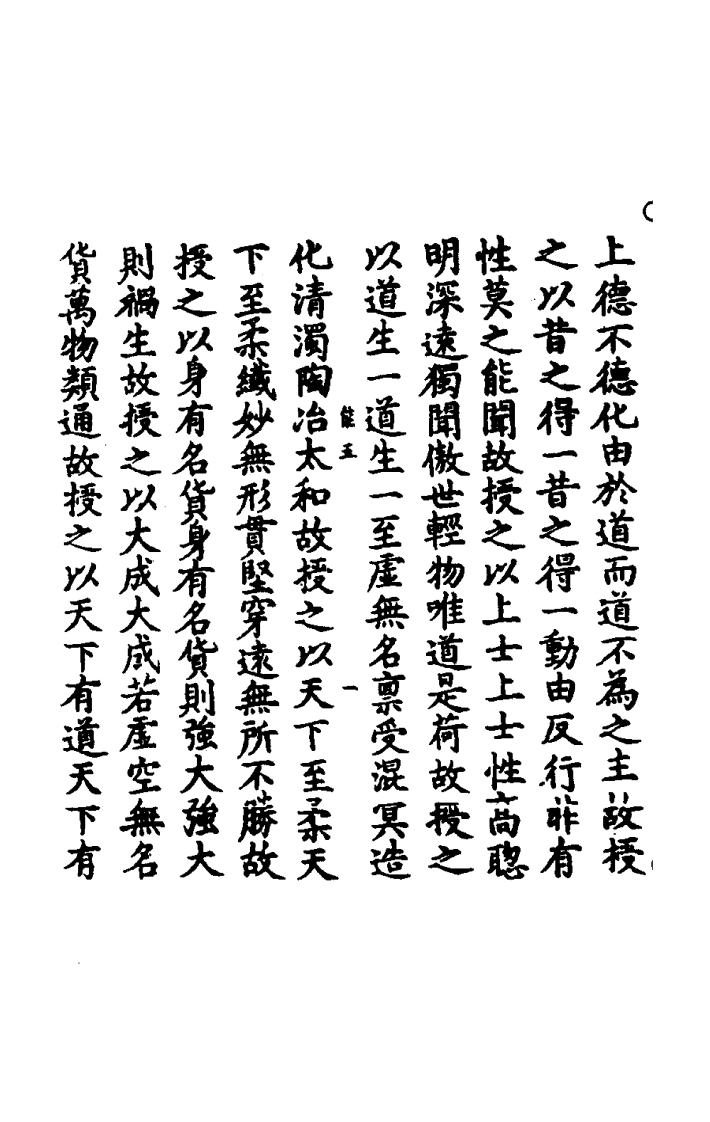 上德不德化由於道而道不為之主故授
之以昔之得一昔之得一動由反行非有
性莫之能聞故授之以上士上士性高聰
明深遠獨聞傲世輕物唯道是荷故授之
以道生一道生一至虛無名稟受混冥造
能五
一
化清濁陶冶太和故授之以天下至柔天
下至柔纖妙無形貫堅穿遠無所不勝故
授之以身有名貨身有名貨則強大強大
則禍生故授之以大成大成若虛空無名
貨萬物類通故授之以天下有道天下有